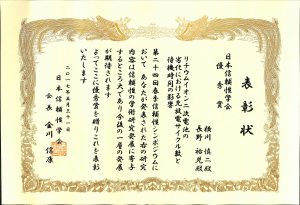 表彰状
日本信頼性学会
優秀賞
横川 慎二殿
長野 祐見殿
リチウムイオン二次電池の
劣化における充放電サイクル数と
待機時間の影響
第二十四回春季信頼性シンポジウムに
おいて あなたが発表された右の研究
内容は信頼性の学術研究発展に寄与
するところ大であり今後の一層の発展
が期待されます
よってここに優秀賞を贈りこれを表彰
いたします
二〇一七年五月三十一日
日本信頼性学会
会長 金川 信康